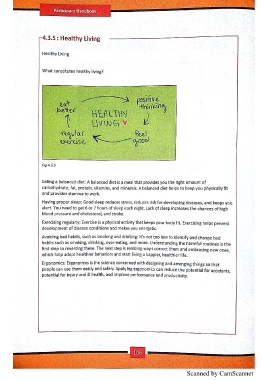 Participant Handbook
4.3.5 : Healthy Living
Healthy Living
What constitutes healthy living?
eat
better
positive
thinking
HEALTHY
LIVING ♥
regular
exercise
feel
good
Fig 4.3.5
Eating a balanced diet: A balanced diet is a meal that provides you the right amount of
carbohydrate, fat, protein, vitamins, and minerals. A balanced diet helps to keep you physically fit
and provides stamina to work.
Having proper sleep: Good sleep reduces stress, reduces risk for developing diseases, and keeps you
alert. You need to get 6 or 7 hours of sleep each night. Lack of sleep increases the chances of high
blood pressure and cholesterol, and stroke.
Exercising regularly: Exercise is a physical activity that keeps your body fit. Exercising helps prevent
development of disease conditions and makes you energetic.
Avoiding bad habits, such as smoking and drinking: It's not too late to identify and change bad
habits such as smoking, drinking, over-eating, and more. Understanding the harmful routines is the
first step to reverting them. The next step is seeking ways correct them and embracing new ones,
which help adopt healthier behaviors and start living a happier, healthier life.
Ergonomics: Ergonomics is the science concerned with designing and arranging things so that
people can use them easily and safely. Applying ergonomics can reduce the potential for accidents,
potential for injury and ill health, and improve performance and productivity.
106
Scanned by CamScanner